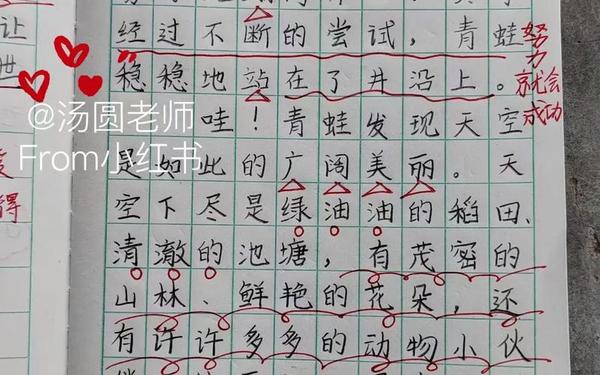 经过不断的尝试，青蛙
稳稳地站在了井沿上。
努力就会成功
哇！青蛙发现天空
是如此的广阔美丽。天
空下尽是绿油油的稻田、
清澈的池塘，有茂密的
山林、鲜艳的花朵，还
有许许多多的动物小伙
让
世
得
@汤圆老师
From小红书